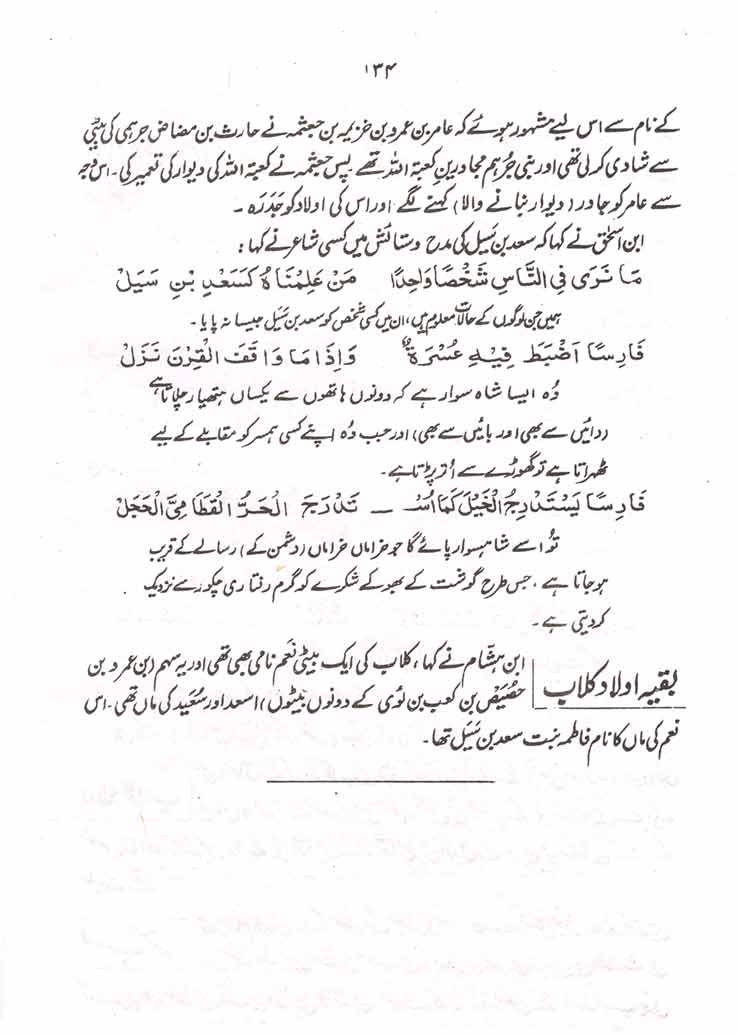 ۱۳۴
کے نام سے اس لیے مشہور ہوئے کہ عامر بن عمرو بن خزیمہ بن جعثمہ نے حارث بن مضاض جرہمی کی بیٹی
سے شادی کرلی تھی اور بنی جُرہم مجاورینِ کعبۃ اللہ تھے۔ پس جعثمہ نے کعبۃ اللہ کی دیوار کی تعمیر کی۔ اس وجہ
سے عامر کو جادر (دیوار بنانے والا) کہنے لگے اور اس کی اولاد کو جَدَرَہ۔
ابن اسحٰق نے کہا کہ سعد بن سَیَل کی مدح و ستائش میں کسی شاعر نے کہا:
مَا نَرَى فِي النَّاسِ شَخْصًا وَاحِدًا مَنْ عَلِمْنَاهُ كَسَعْدِ بْنِ سَيَلْ
ہمیں جن لوگوں کے حالات معلوم ہیں، ان میں کسی شخص کو سعد بن سَیَل جیسا نہ پایا۔
فَارِسًا أَضْبَطَ فِيهِ عُسْرَةٌ وَإِذَا مَا وَاقَفَ الْقِرْنَ نَزَلْ
وُہ ایسا شاہ سوار ہے کہ دونوں ہاتھوں سے یکساں ہتھیار چلاتا ہے
(دائیں سے بھی اور بائیں سے بھی) اور جب وُہ اپنے کسی ہمسر کو مقابلے کے لیے
ٹھہراتا ہے تو گھوڑے سے اُتر پڑتا ہے۔
فَارِسًا يَسْتَدْرِجُ الْخَيْلَ كَمَا اسْـ ـتَدْرَجَ الْحَرُّ الْقَطَامِيَّ الْحَجَلْ
تُو اسے شاہسوار پائے گا جو خراماں خراماں (دشمن کے) رسالے کے قریب
ہو جاتا ہے، جس طرح گوشت کے بھوکے شکرے کو گرم رفتاری چکور سے نزدیک
کر دیتی ہے۔
بقیہ اولاد کلاب
ابن ہشام نے کہا، کلاب کی ایک بیٹی نعم نامی بھی تھی اور یہ سہم ابن عمرو بن
حُصَیص بن کعب بن لوی کے دونوں بیٹوں) اسعد اور سُعَید کی ماں تھی۔ اس
نعم کی ماں کا نام فاطمہ بنت سعد بن سَیَل تھا۔